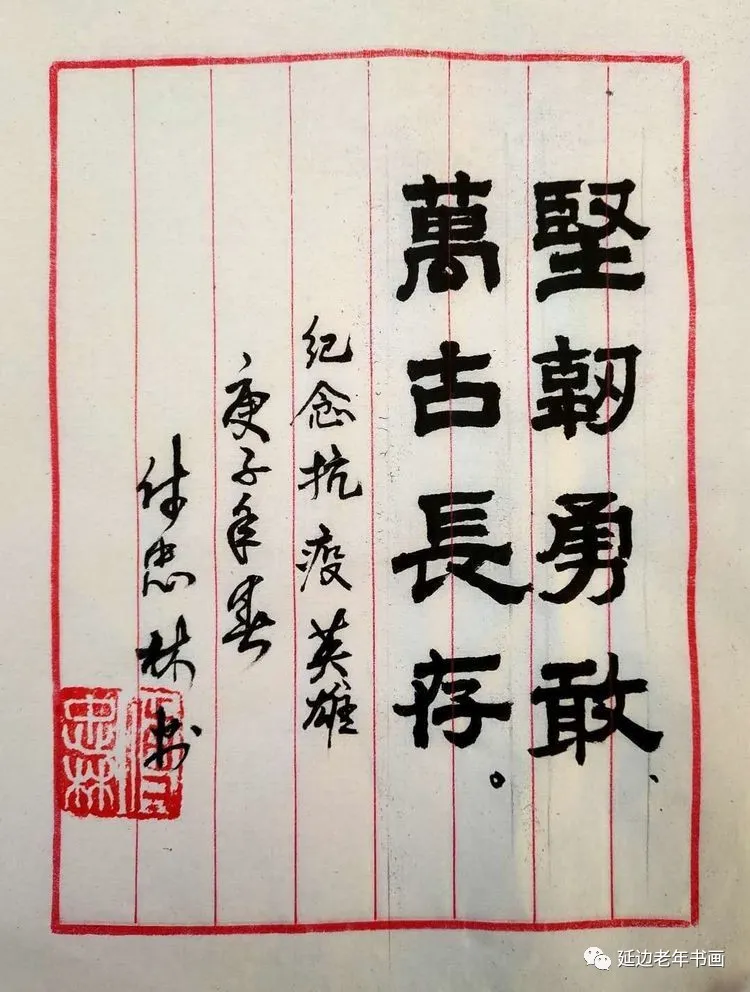 堅韌勇敢、
萬古長存。
纪念抗疫英雄
庚子年春
付忠林书
忠林
延边老年书画